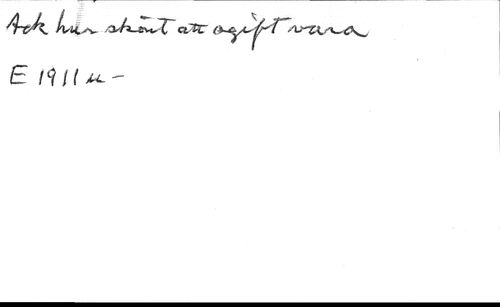 Ack hur skönt att ogift vara
E 1911 u –